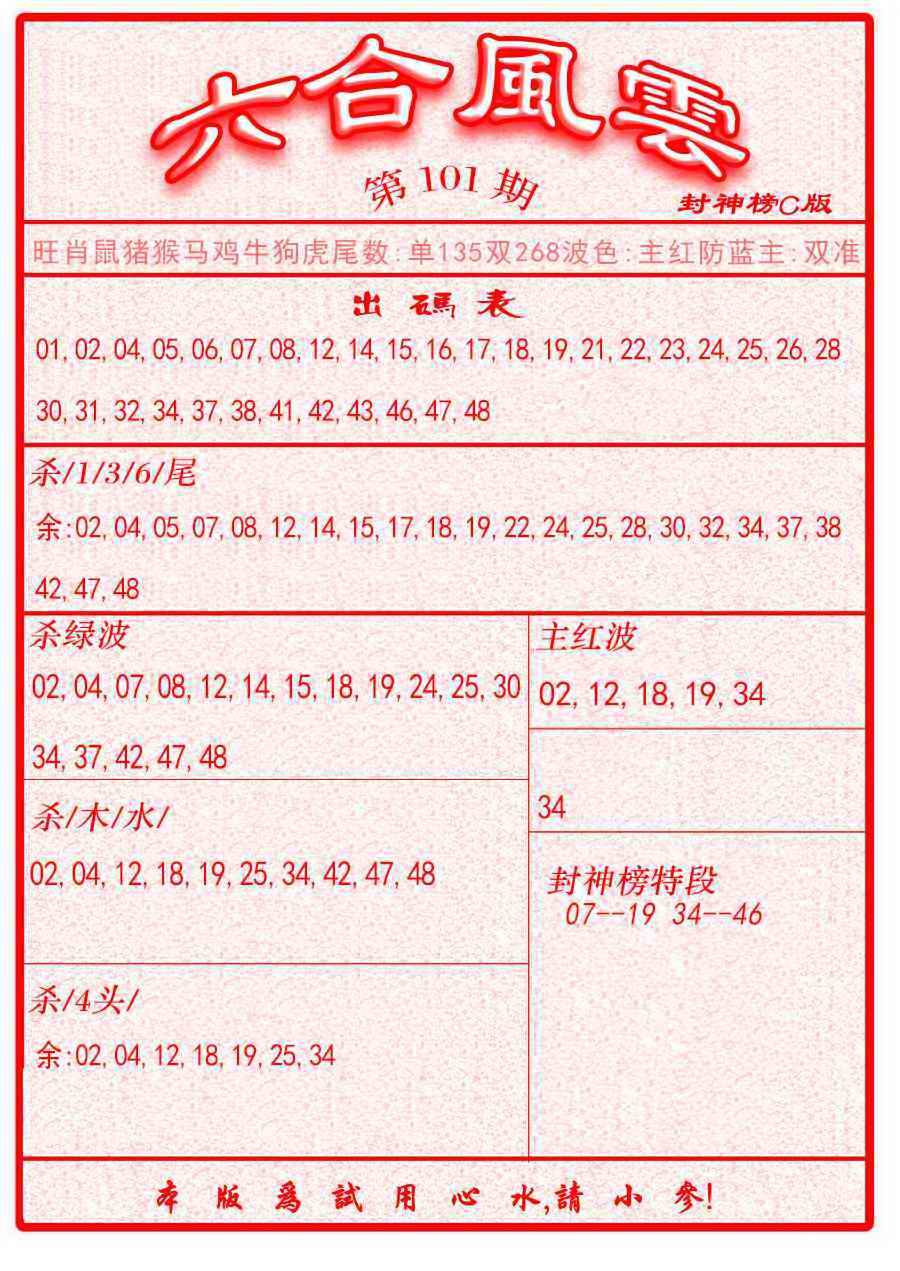 六合風雲
第101期
封神榜C版
旺肖鼠猪猴马鸡牛狗虎尾数:单135双268波色:主红防蓝主:双准
出碼表
01,02,04,05,06,07,08,12,14,15,16,17,18,19,21,22,23,24,25,26,28
30,31,32,34,37,38,41,42,43,46,47,48
杀/1/3/6/尾
余:02,04,05,07,08,12,14,15,17,18,19,22,24,25,28,30,32,34,37,38
42,47,48
杀绿波
02,04,07,08,12,14,15,18,19,24,25,30
34,37,42,47,48
主红波
02,12,18,19,34
34
杀/木/水/
02,04,12,18,19,25,34,42,47,48
封神榜特段
07--19 34--46
杀/4头/
余:02,04,12,18,19,25,34
本版爲試用心水,請小參!